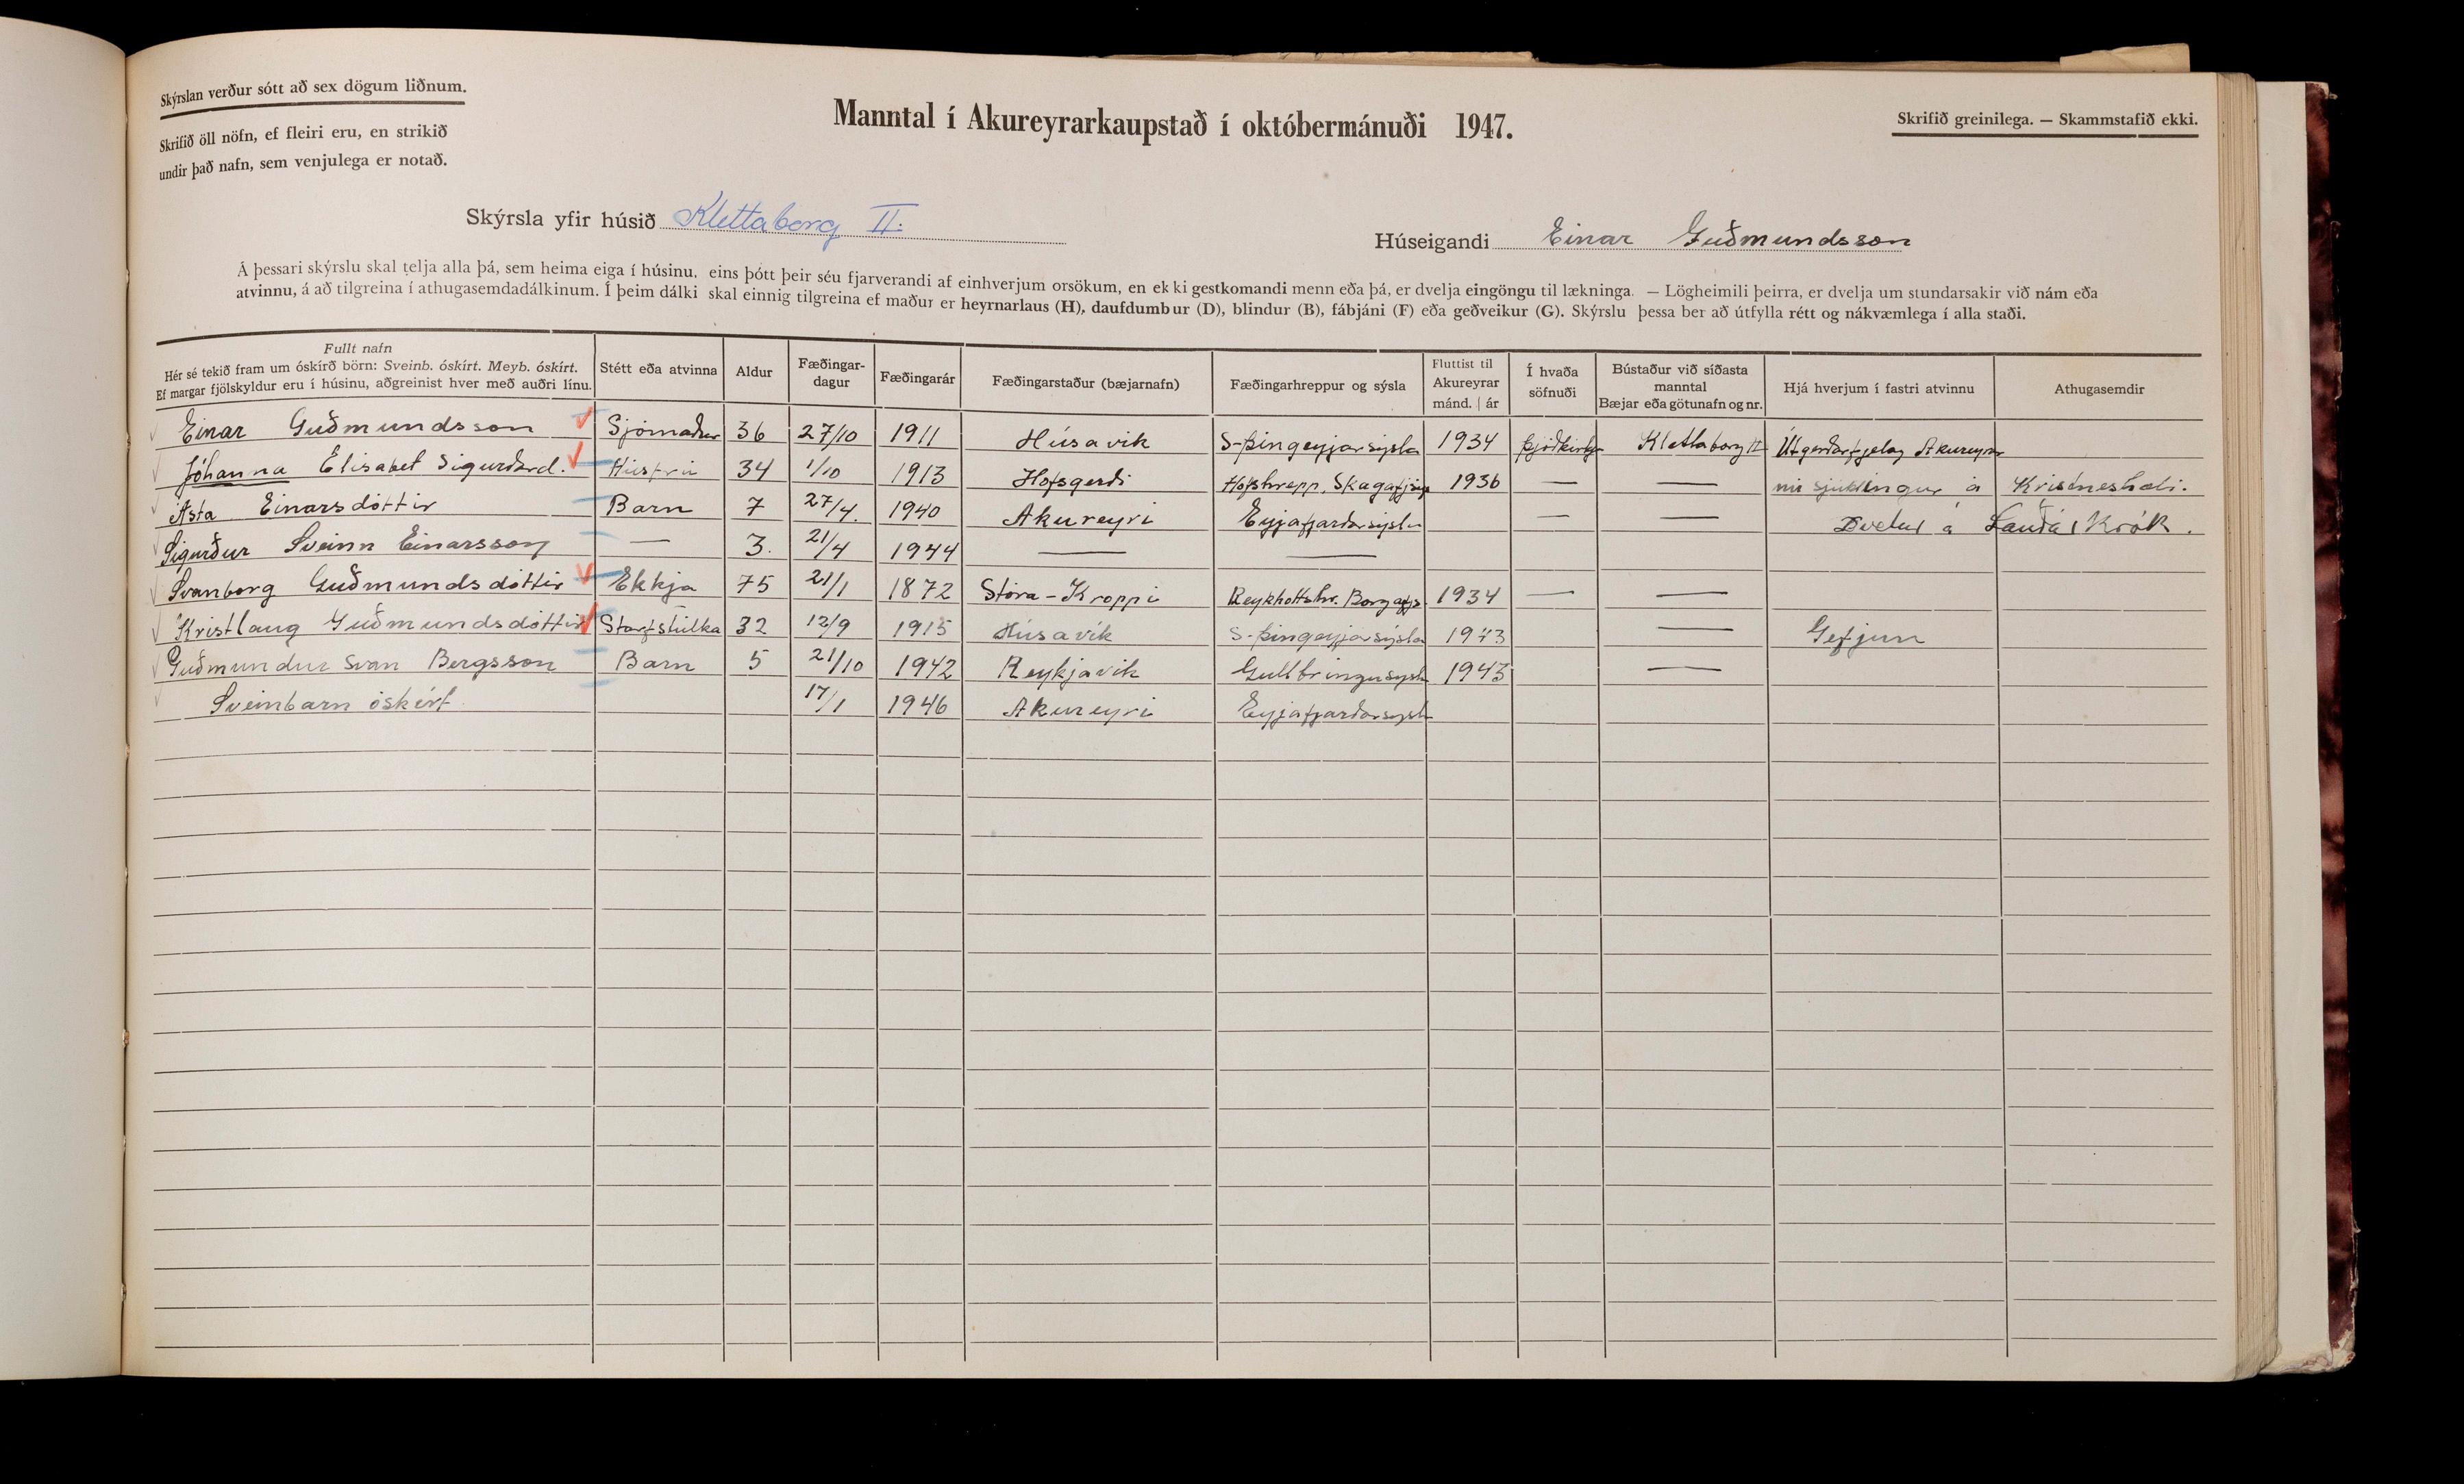 Skýrslan verður sótt að sex dögum liðnum.
Skrifið öll nöfn, ef fleiri eru, en strikið
undir það nafn, sem venjulega er notað.
Manntal í Akureyrarkaupstað í októbermánuði 1947.
Skrifið greinilega. — Skammstafið ekki.
Skýrsla yfir húsið Klettaborg II.
Húseigandi Einar Guðmundsson
Á þessari skýrslu skal telja alla þá, sem heima eiga í húsinu, eins þótt þeir séu fjarverandi af einhverjum orsökum, en ekki gestkomandi menn eða þá, er dvelja eingöngu til lækninga. — Lögheimili þeirra, er dvelja um stundarsakir við nám eða
atvinnu, á að tilgreina í athugasemdadálkinum. Í þeim dálki skal einnig tilgreina ef maður er heyrnarlaus (H), daufdumbur (D), blindur (B), fábjáni (F) eða geðveikur (G). Skýrslu þessa ber að útfylla rétt og nákvæmlega í alla staði.
Fullt nafn
Hér sé tekið fram um óskírð börn: Sveinb. óskírt. Meyb. óskírt.
Ef margar fjölskyldur eru í húsinu, aðgreinist hver með auðri línu.
Stétt eða atvinna
Aldur
Fæðingar-
dagur
Fæðingarár
Fæðingarstaður (bæjarnafn)
Fæðingarhreppur og sýsla
Fluttist til
Akureyrar
mánd. | ár
Í hvaða
söfnuði
Bústaður við síðasta
manntal
Bæjar eða götunafn og nr.
Hjá hverjum í fastri atvinnu
Athugasemdir
Einar Guðmundsson Sjómaður 36 27/10 1911 Húsavik S-Þingeyjarsýsla 1934 Þjóðkirkju Klettaborg II Útgerðarfjelag Akureyrar
Jóhanna Elisabet Sigurðard. Húsfrú 34 1/10 1913 Hofsgerði Hofshrepp. Skagafjsýs 1936 — — nú sjúklingur á Kristneshæli.
Ásta Einarsdóttir Barn 7 27/4. 1940 Akureyri Eyjafjarðarsýsla — — Dvelur á Sauðárkrók.
Sigurður Sveinn Einarsson — 3. 21/4 1944 — —
Svanborg Guðmundsdóttir Ekkja 75 21/1 1872 Stóra-Kroppi Reykholtshr. Borgafjs. 1934 — —
Kristlaug Guðmundsdóttir Starfstúlka 32 12/9 1915 Húsavík S-Þingeyjarsýsla 1943 — Gefjun
Guðmundur Svan Bergsson Barn 5 21/10 1942 Reykjavik Gullbringusýsla 1943 —
Sveinbarn óskírt 17/1 1946 Akureyri Eyjafjarðarsýsla